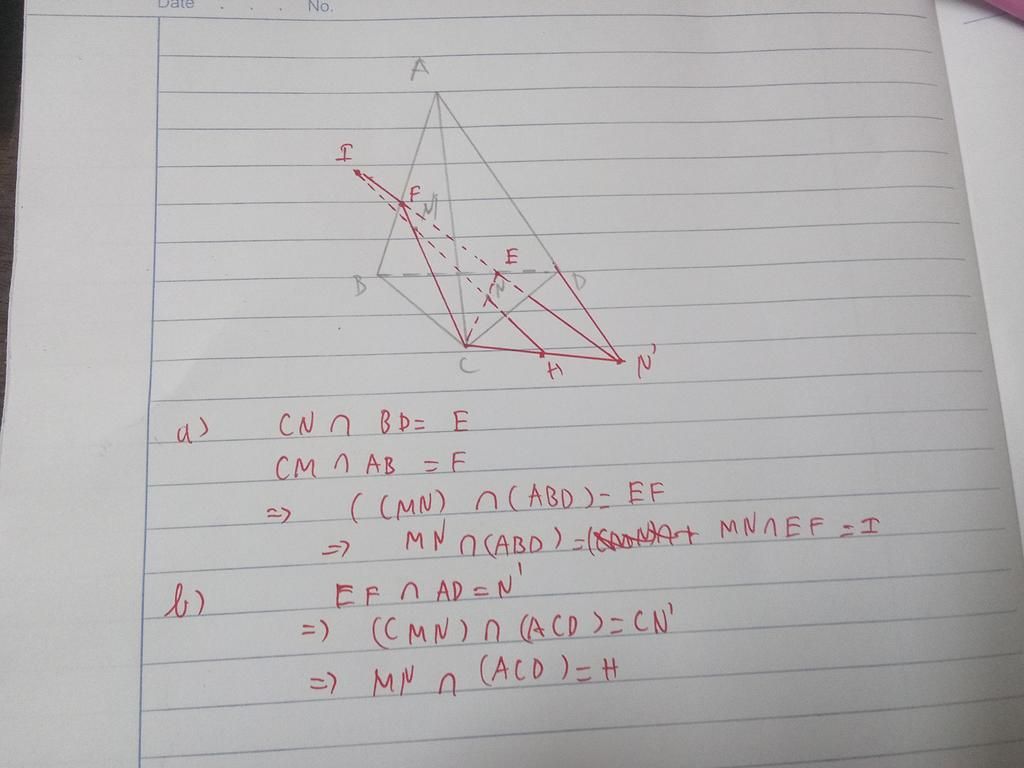 Date . . . No.
A
I
F
M
E
B
N
D
C
H
N'
a) CN ∩ BD = E
CM ∩ AB = F
=> ((MN) ∩ (ABD) = EF
=> MN ∩ (ABD) = MN ∩ EF = I
b) EF ∩ AD = N'
=> (CMN) ∩ (ACD) = CN'
=> MN ∩ (ACD) = H